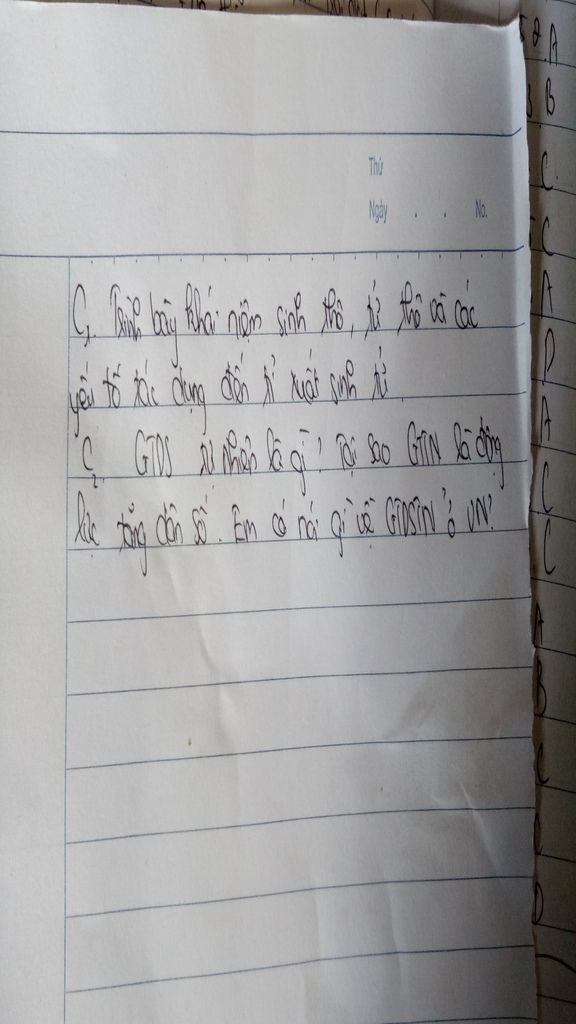 Thứ
Ngày . . No.
C1. Trình bày khái niệm sinh thô, tử thô và các
yếu tố tác dụng đến tỉ suất sinh tử
C2. GTDS tự nhiên là gì? Tại sao GTTN là động
lực tăng dân số. Em có nói gì về GTDSTN ở VN?
5 2. A
3 B
C.
C
A
D
A
C
C
A
B
C
C
D